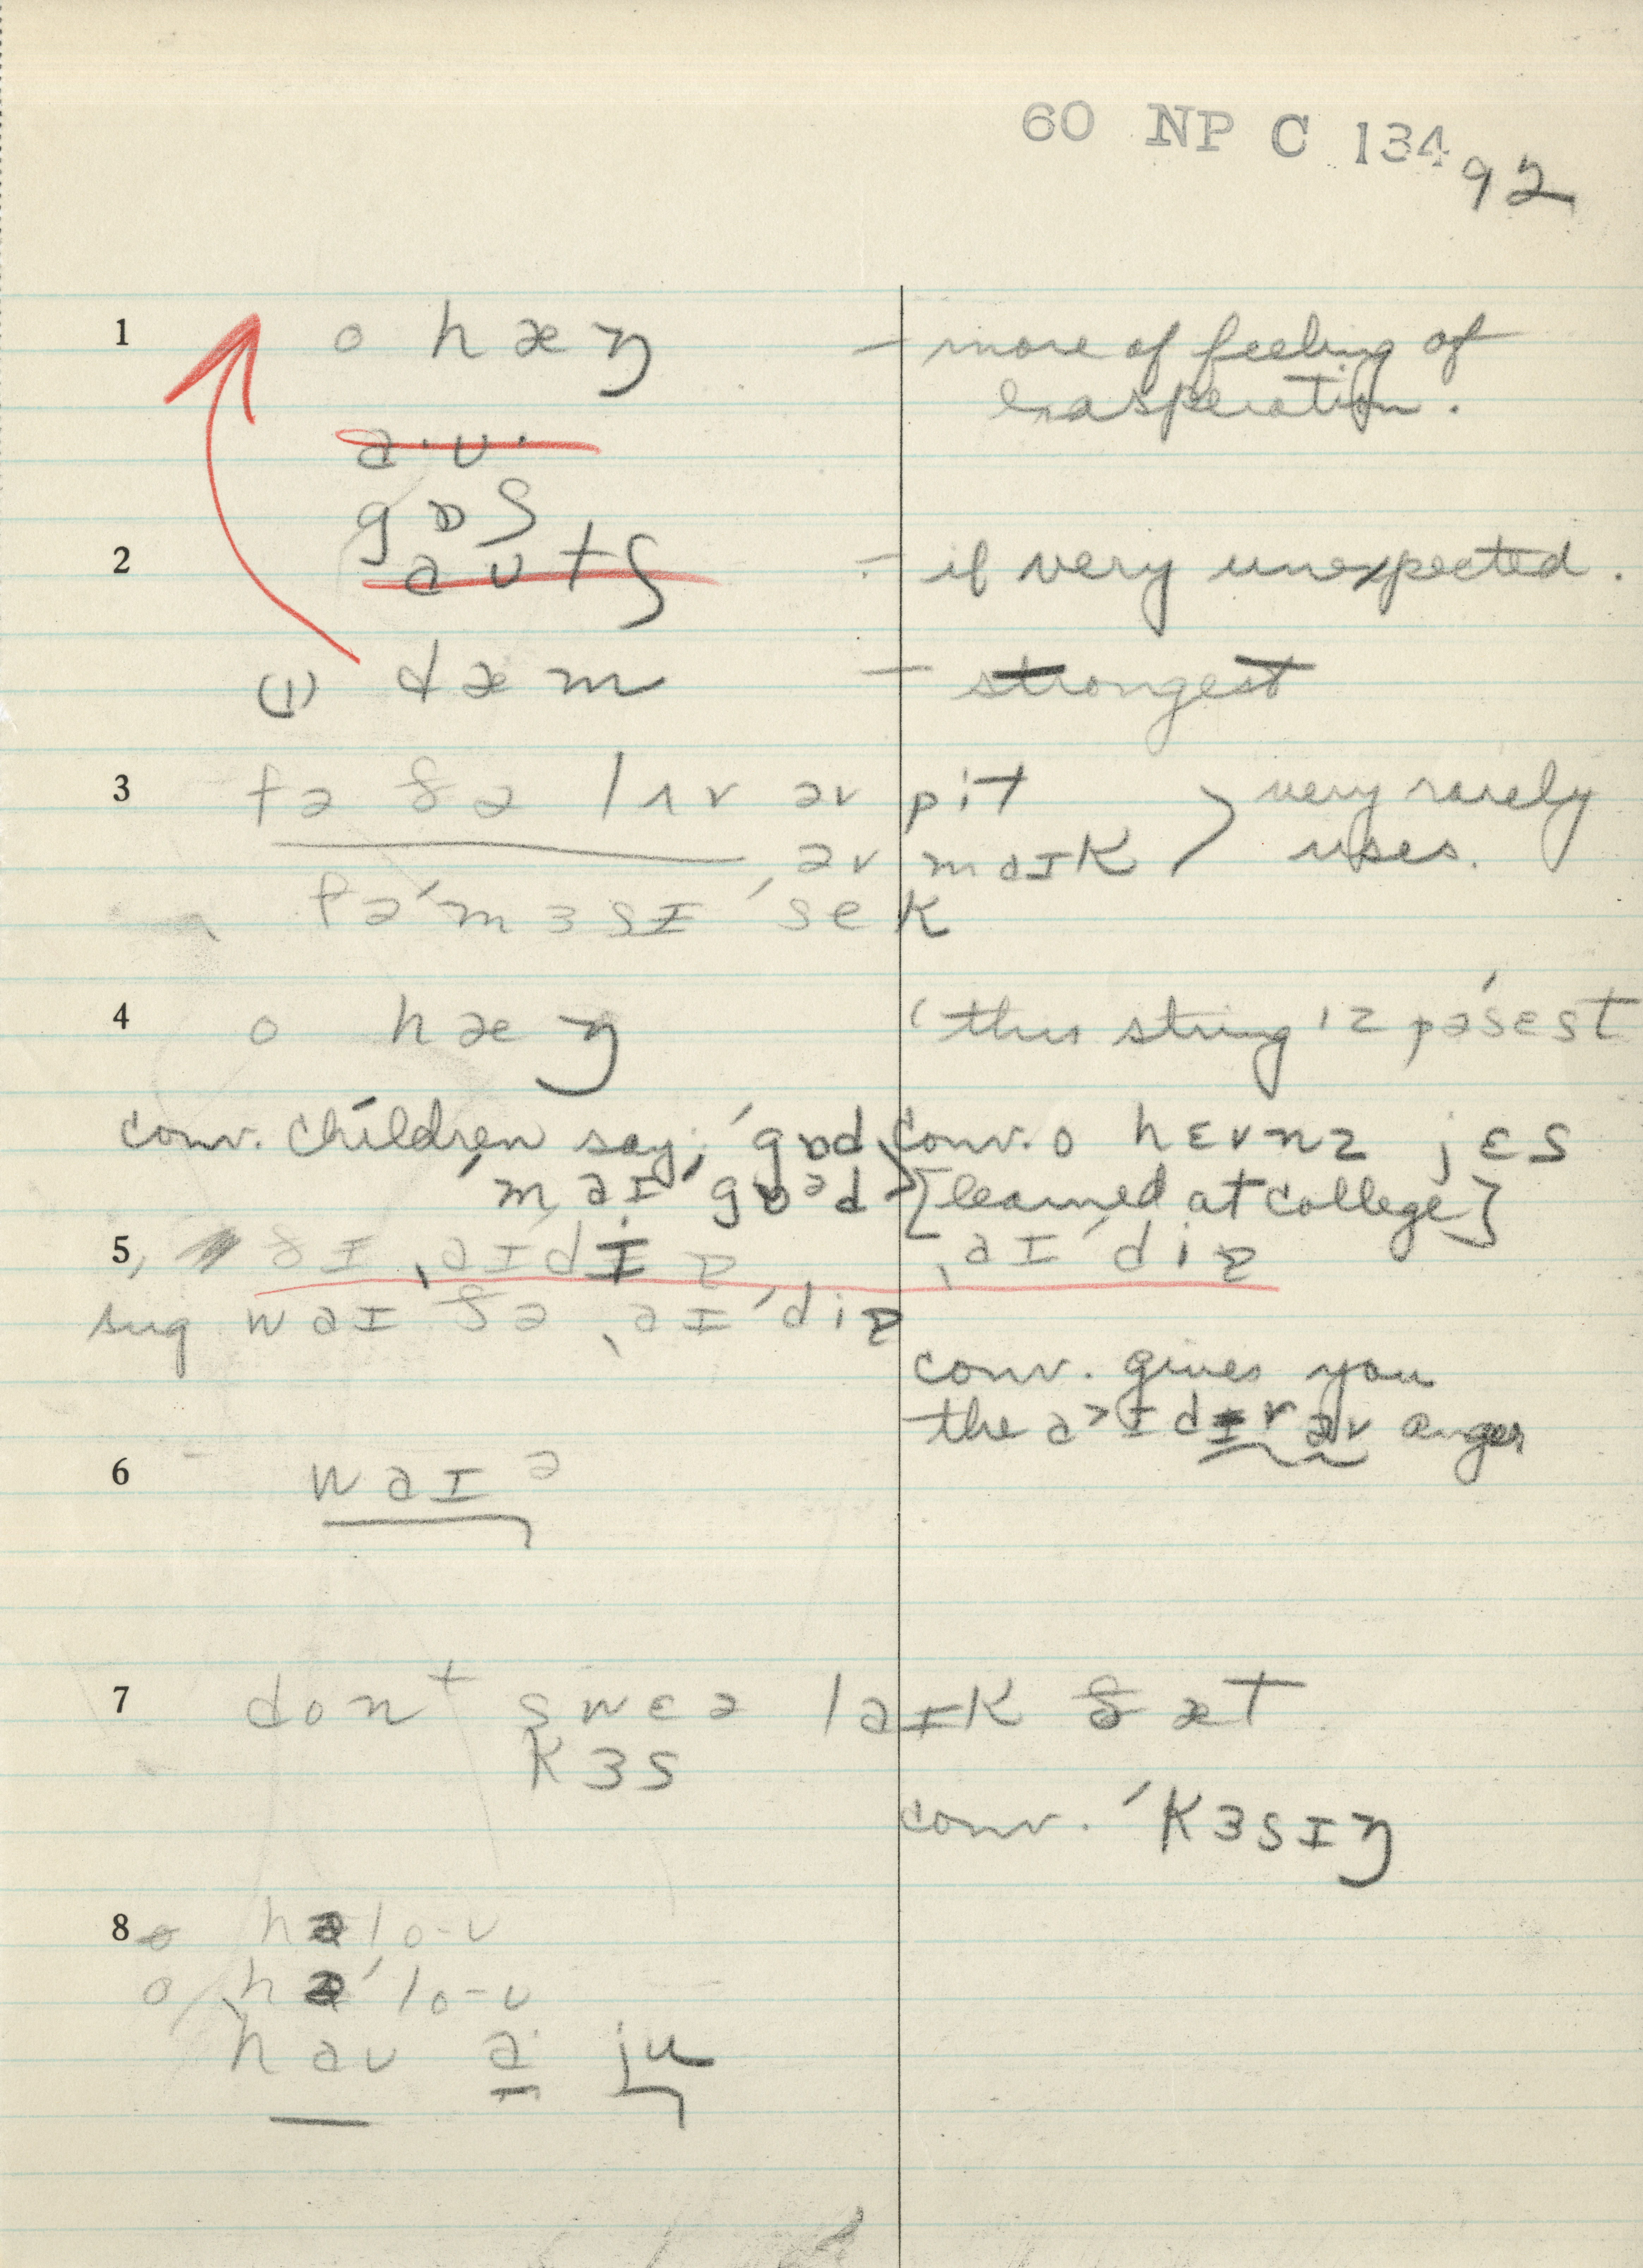 60 NP C 134
92
1 o hæŋ — more of feeling of
exasperation.
a·ʊ·
gɒʃ
2 aʊtʃ — if very unexpected.
(1) dæm — strongest
3 fə ðə lʌv əv pit
əv maɪk } very rarely uses.
fə ˈmɜsɪ ˈsek
4 o hæŋ (this string ɪz pəˈsest
conv. children say; ˈgɒd
ˈmaɪ ˈgɒᵊd
conv. o hɛvnz jɛs
[learned at college]
5, ðɪ ˌaɪˈdɪə, ˌaɪˈdiə
sug waɪ ðə ˌaɪˈdiə
conv. gives you
the aɪdɪr əv anger
6 waɪ ə
7 dont swɛə laɪk ðæt
kɜs
conv. ˈkɜsɪŋ
8 o həlo-ʊ
o həˈlo-ʊ
haʊ a ju